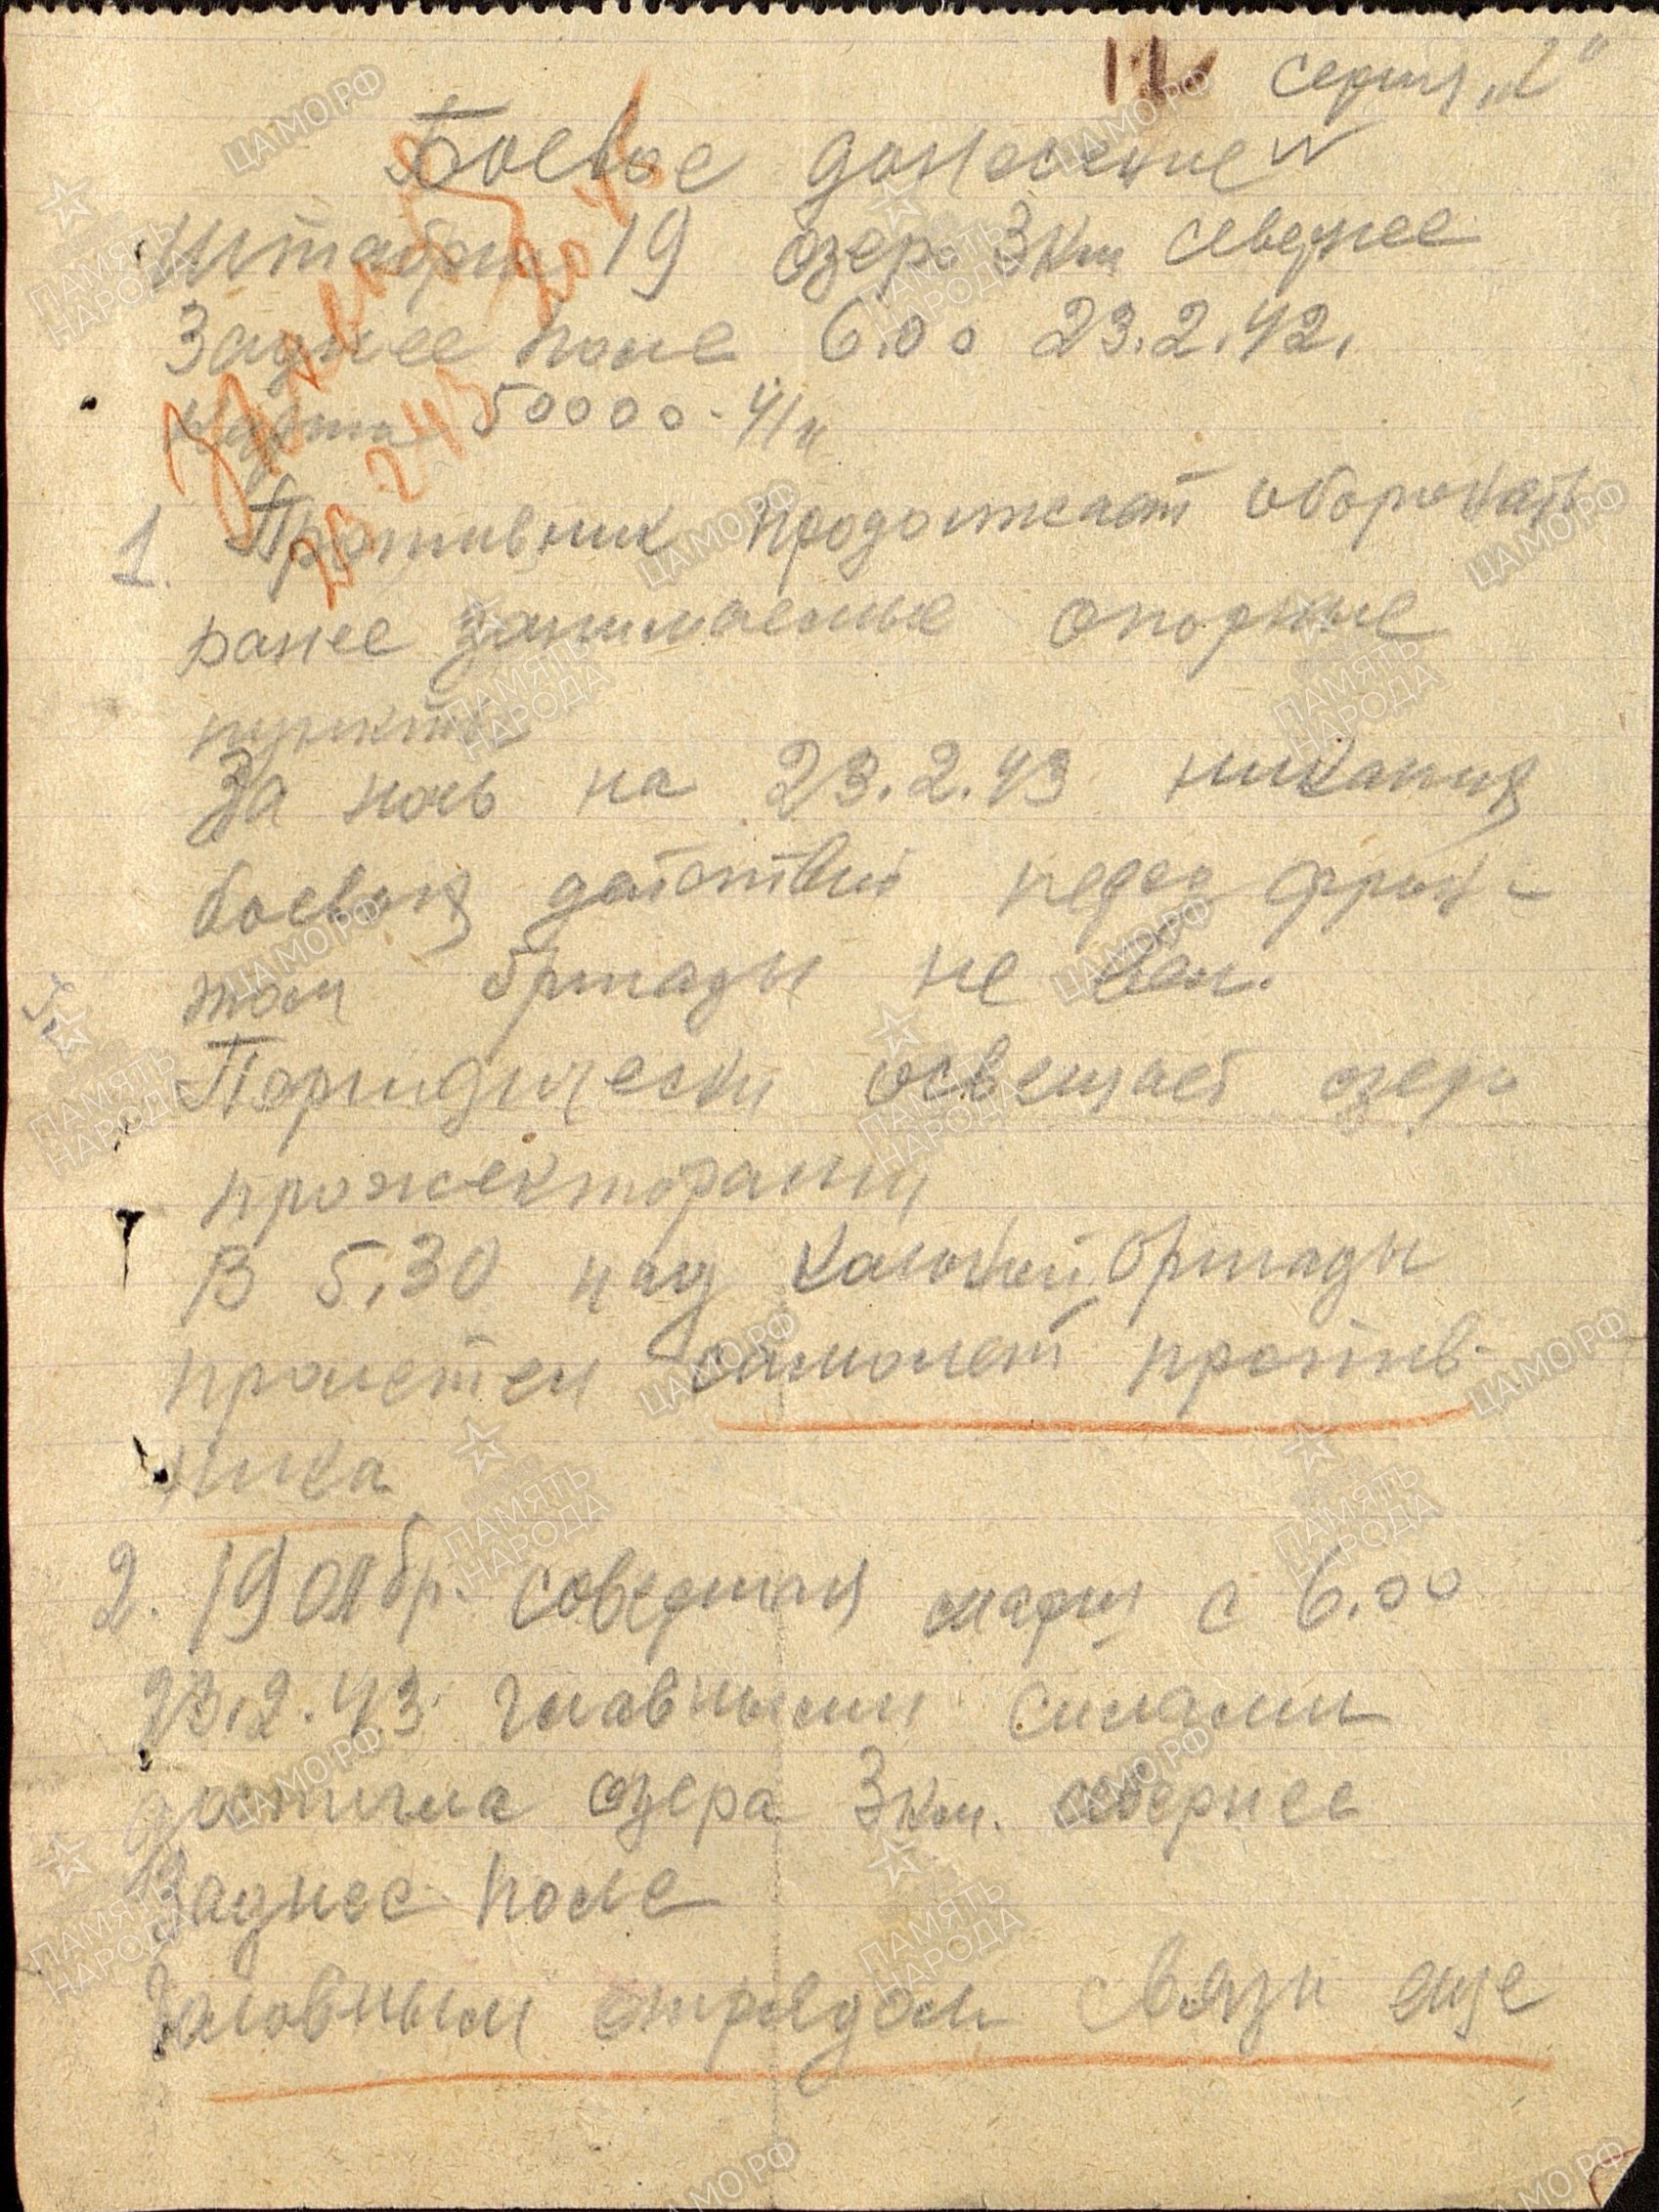 12 серия „Г"
Боевое донесение
Штабриг 19 озеро 3 км севернее
Заднее поле 6.00 23.2.42.
карта 50000-41 г
1. Противник продолжает оборонять
ранее занимаемые опорные
пункты
За ночь на 23.2.43 никаких
боевых действий перед фрон-
том бригады не вел.
Периодически освещает озеро
прожекторами,
В 5.30 над колонной бригады
пролетел самолет против-
ника
2. 19 олбр. совершая марш с 6.00
23.2.43. главными силами
достигла озера 3 км. севернее
Заднее поле
Головным отрядом связи еще